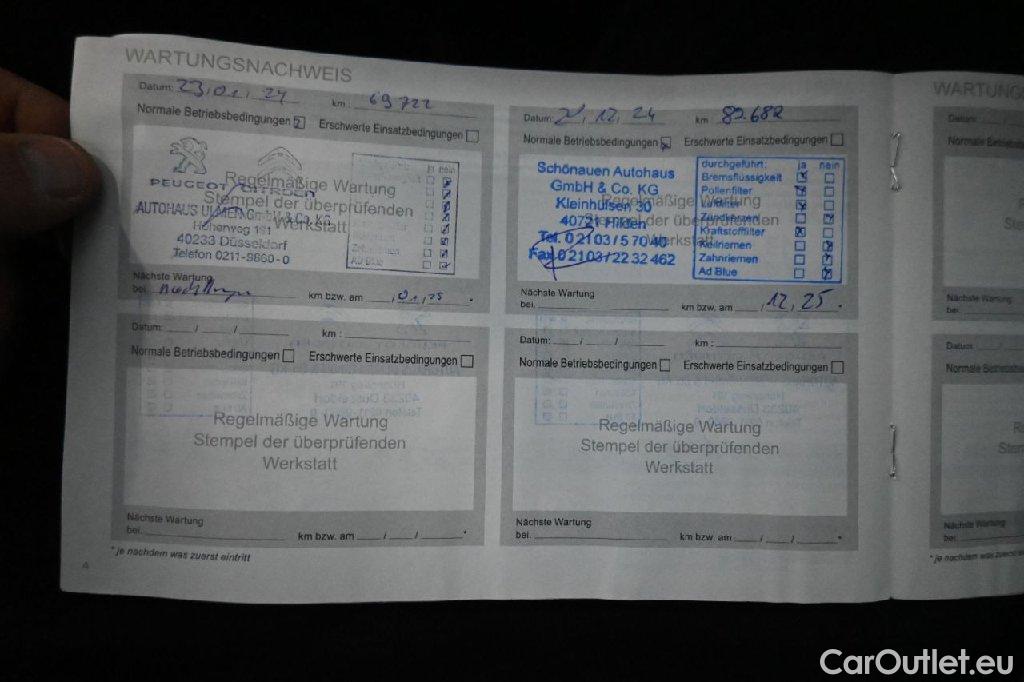 WARTUNGSNACHWEIS
Datum: 23.01.24 km: 69722
Normale Betriebsbedingungen Erschwerte Einsatzbedingungen
PEUGEOT / CITROËN
Regelmäßige Wartung
Stempel der überprüfenden
Werkstatt
AUTOHAUS ULMEN GmbH & Co. KG
Höhenweg 1
40233 Düsseldorf
Telefon 0211-9860-0
ja nein
Zahnriemen
Ad Blue
Nächste Wartung
bei km bzw. am 01, 25 *
Datum: 12, 24 km 82682
Normale Betriebsbedingungen Erschwerte Einsatzbedingungen
Schönauen Autohaus
GmbH & Co. KG
Kleinhülsen 30
40721 Hilden
Tel. 02103/57040
Fax 02103/2232462
Regelmäßige Wartung
Stempel der überprüfenden
Werkstatt
durchgeführt: ja nein
Bremsflüssigkeit
Pollenfilter
Luftfilter
Zündkerzen
Kraftstofffilter
Keilriemen
Zahnriemen
Ad Blue
Nächste Wartung
bei. km bzw. am 12, 25 *
Datum: / / km :
Normale Betriebsbedingungen Erschwerte Einsatzbedingungen
Regelmäßige Wartung
Stempel der überprüfenden
Werkstatt
Nächste Wartung
bei. km bzw. am / / *
Datum: / / km :
Normale Betriebsbedingungen Erschwerte Einsatzbedingungen
Regelmäßige Wartung
Stempel der überprüfenden
Werkstatt
Nächste Wartung
bei. km bzw. am / / *
* je nachdem was zuerst eintritt
4
WARTUNGS
Datum:
Normale Betriebsbe
Nächste Wartung
bei.
Datum: /
Normale Betriebsbe
Re
Stem
Nächste Wartung
bei.
* je nachdem was zuerst
CarOutlet.eu